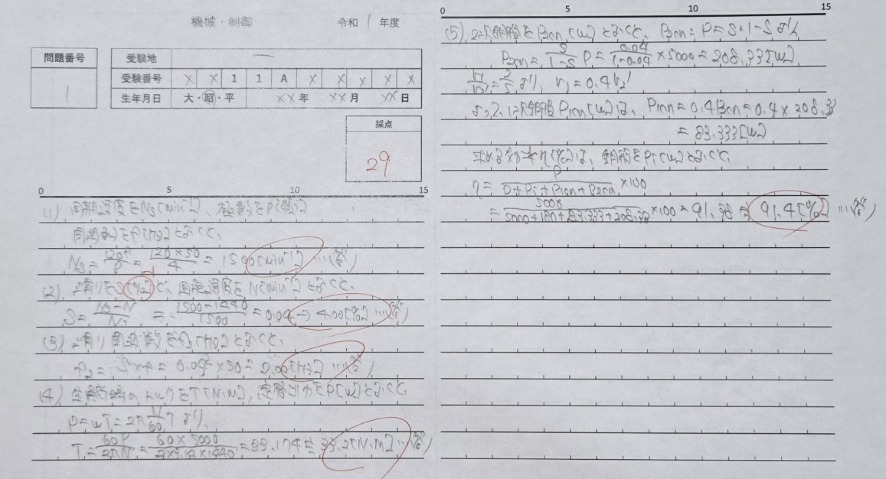 機械・制御 令和 1 年度
問題番号
1
受験地 —
受験番号 X X 1 1 A X X X X X
生年月日 大・昭・平 XX 年 XX 月 XX 日
採点
29
0 5 10 15
(1) 同期速度をNs[min⁻¹]、極数をP[極]
周波数をf[Hz]とおくと、
Ns = 120f/P = 120×50/4 = 1500[min⁻¹] …(答)
(2) 滑りをS[%]と、回転速度をN[min⁻¹]とおくと、
S = Ns-N/Ns = 1500-1440/1500 = 0.04 → 4.00[%] …(答)
(3) 滑り周波数をf₂[Hz]とおくと、
f₂ = S×f = 0.04×50 = 2.00[Hz] …(答)
(4) 全負荷時のトルクをT[N·m]、定格出力をP[W]とおくと、
P = ωT = 2π N/60 T より、
T = 60P/2πN = 60×5000/2×3.14×1440 = 33.174 ≒ 33.2[N·m] …(答)
0 5 10 15
(5) 2次銅損をP2cn[W]とおくと、P2cn : P = S : 1-S より
P2cn = S/1-S P = 0.04/1-0.04 × 5000 = 208.33[W]
r1/r2' = 2/5 より、r1 = 0.4r2'
よって、1次銅損P1cn[W]は、P1cn = 0.4P2cn = 0.4 × 208.33
= 83.333[W]
求める効率η[%]は、鉄損をPi[W]とおくと、
η = P/P+Pi+P1cn+P2cn ×100
= 5000/5000+180+83.333+208.33 ×100 = 91.38 ≒ 91.4[%] …(答)